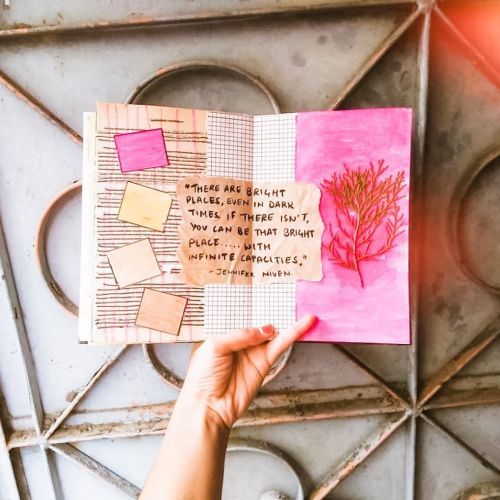 "THERE ARE BRIGHT
PLACES, EVEN IN DARK
TIMES. IF THERE ISN'T,
YOU CAN BE THAT BRIGHT
PLACE..... WITH
INFINITE CAPACITIES."
- JENNIFER NIVEN.